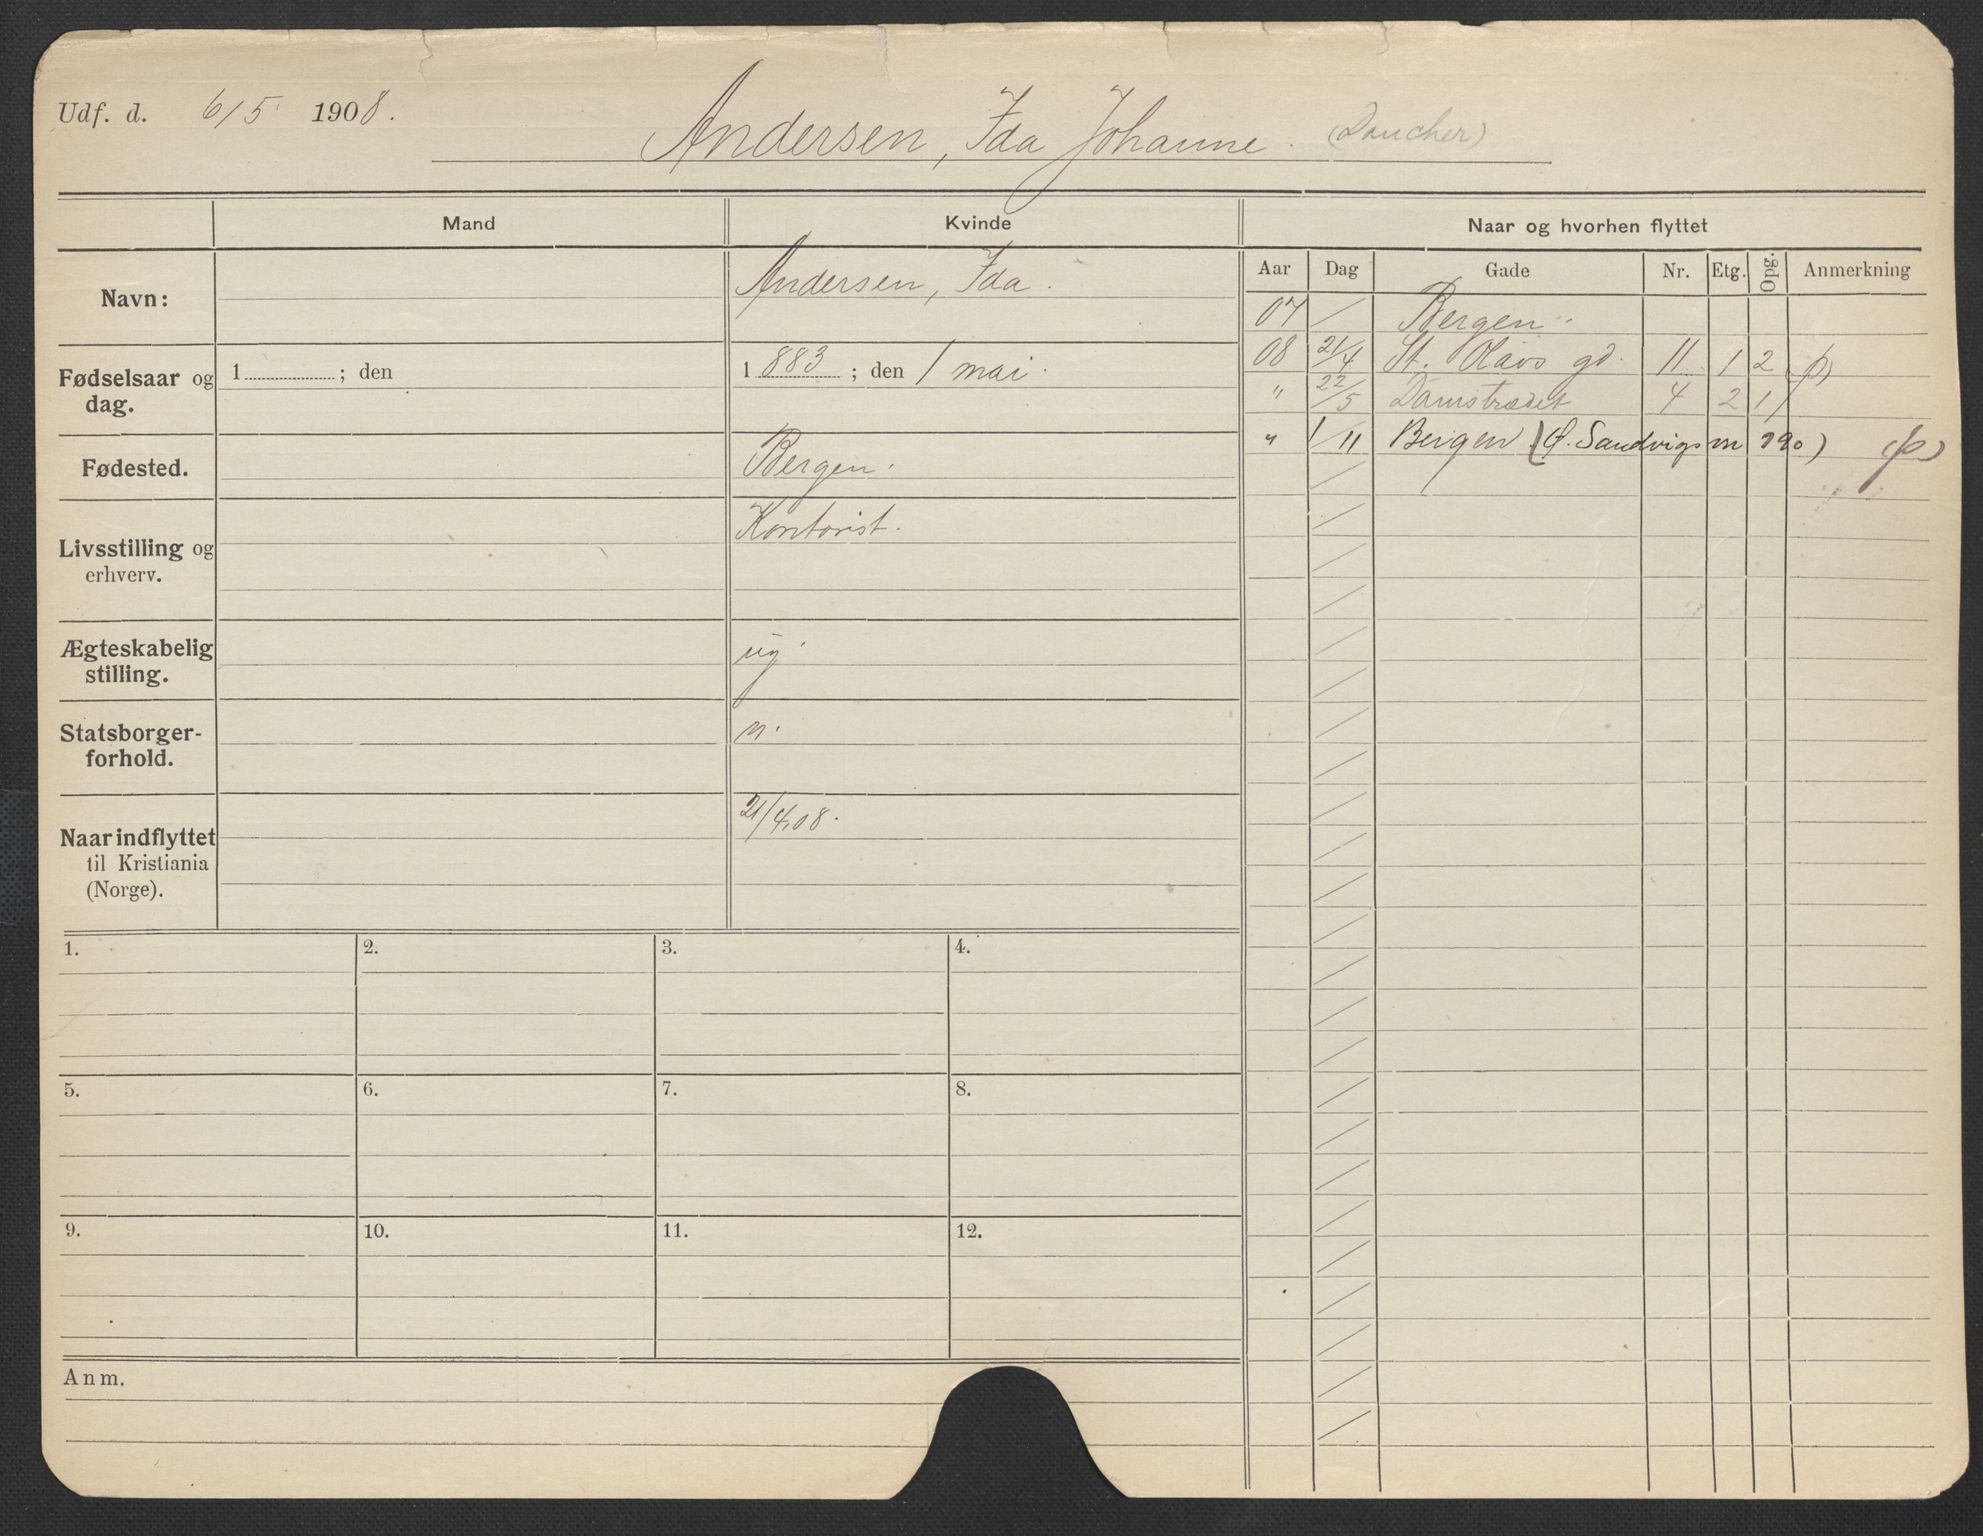 Udf. d. 6/5 1908.
Andersen, Ida Johanne. (Daucher)
Mand
Kvinde
Naar og hvorhen flyttet
Aar Dag Gade Nr. Etg. Opg. Anmerkning
Navn:
Andersen, Ida.
Fødselsaar og dag.
1 ; den
1 883 ; den 1 mai.
Fødested.
Bergen.
Livsstilling og erhverv.
Kontorist.
Ægteskabelig stilling.
ug.
Statsborger-
forhold.
n.
Naar indflyttet
til Kristiania
(Norge).
21/4.08.
07 / Bergen.
08 21/4 St. Olavs gd. 11 1 2 (p)
" 22/5 Damstrædet 4 2 1
" 1/11 Bergen (Ø. Sandvigsm 190) (p)
1.
2.
3.
4.
5.
6.
7.
8.
9.
10.
11.
12.
Anm.